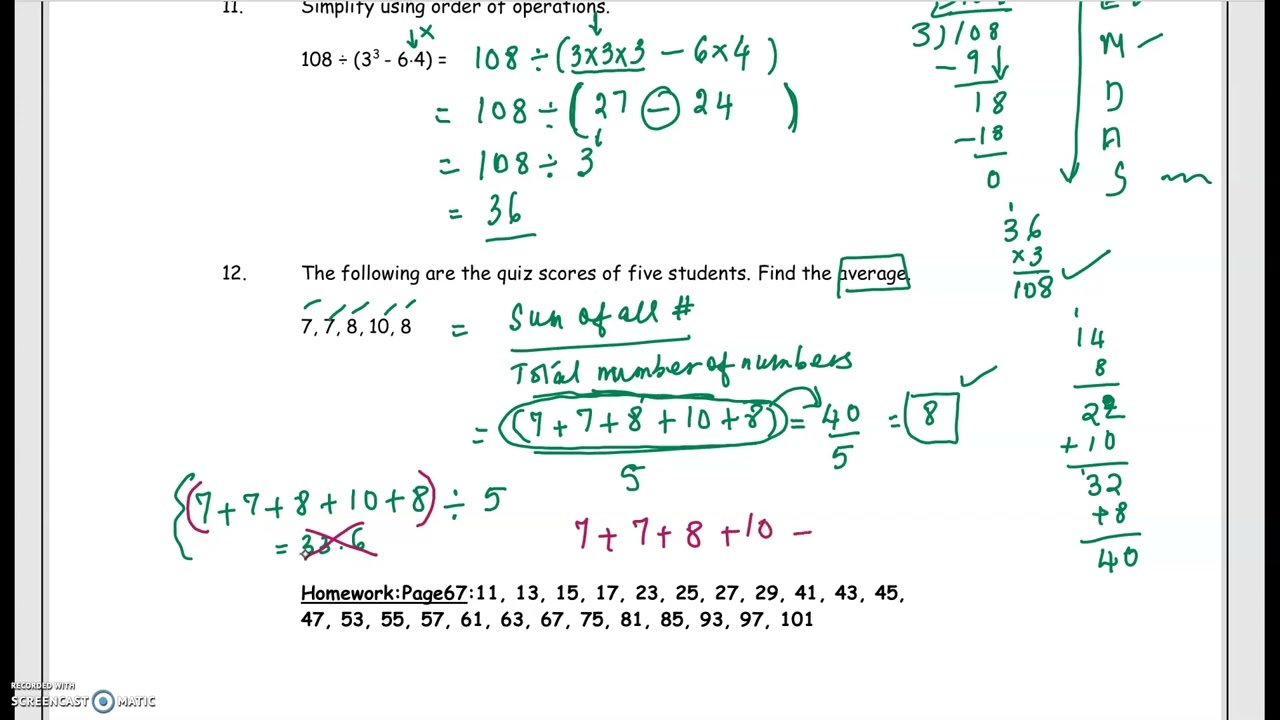 11. Simplify using order of operations.
108 ÷ (3³ - 6·4) = 108 ÷ (3×3×3 − 6×4 )
×
= 108 ÷ ( 27 − 24 )
= 108 ÷ 3
= 36
3)108
− 9
18
−18
0
M
D
A
S
36
×3
108
12. The following are the quiz scores of five students. Find the average.
7, 7, 8, 10, 8 = Sum of all #
Total number of numbers
= (7 + 7 + 8 + 10 + 8) = 40 = 8
5 5
14
8
22
+ 10
32
+ 8
40
{(7 + 7 + 8 + 10 + 8) ÷ 5
= 33.6
7 + 7 + 8 + 10 −
Homework:Page67:11, 13, 15, 17, 23, 25, 27, 29, 41, 43, 45,
47, 53, 55, 57, 61, 63, 67, 75, 81, 85, 93, 97, 101
RECORDED WITH
SCREENCAST MATIC